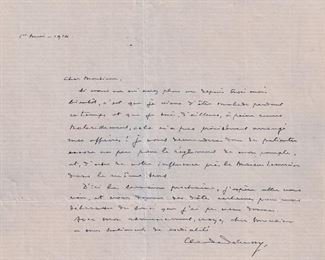 1er Mars - 1914
Cher Monsieur,
Si vous ne m'avez plus vu depuis trois mois
bientôt, c'est que je viens d'être malade pendant
ce temps et que je suis, d'ailleurs, à peine remis
cela n'a pas précisément arrangé
mes affaires ! Je vous demande donc de patienter
encore un peu pour le règlement de mon compte,
et, d'user de votre influence près la Maison
dans le même sens
D'ici la semaine prochaine, j'espère aller vous
voir, et vous donner des dates certaines pour vous
que j'ai pu vous donner.
Avec mes remerciements, croyez, cher Monsieur
à mes sentiments de cordialité
Claude Debussy